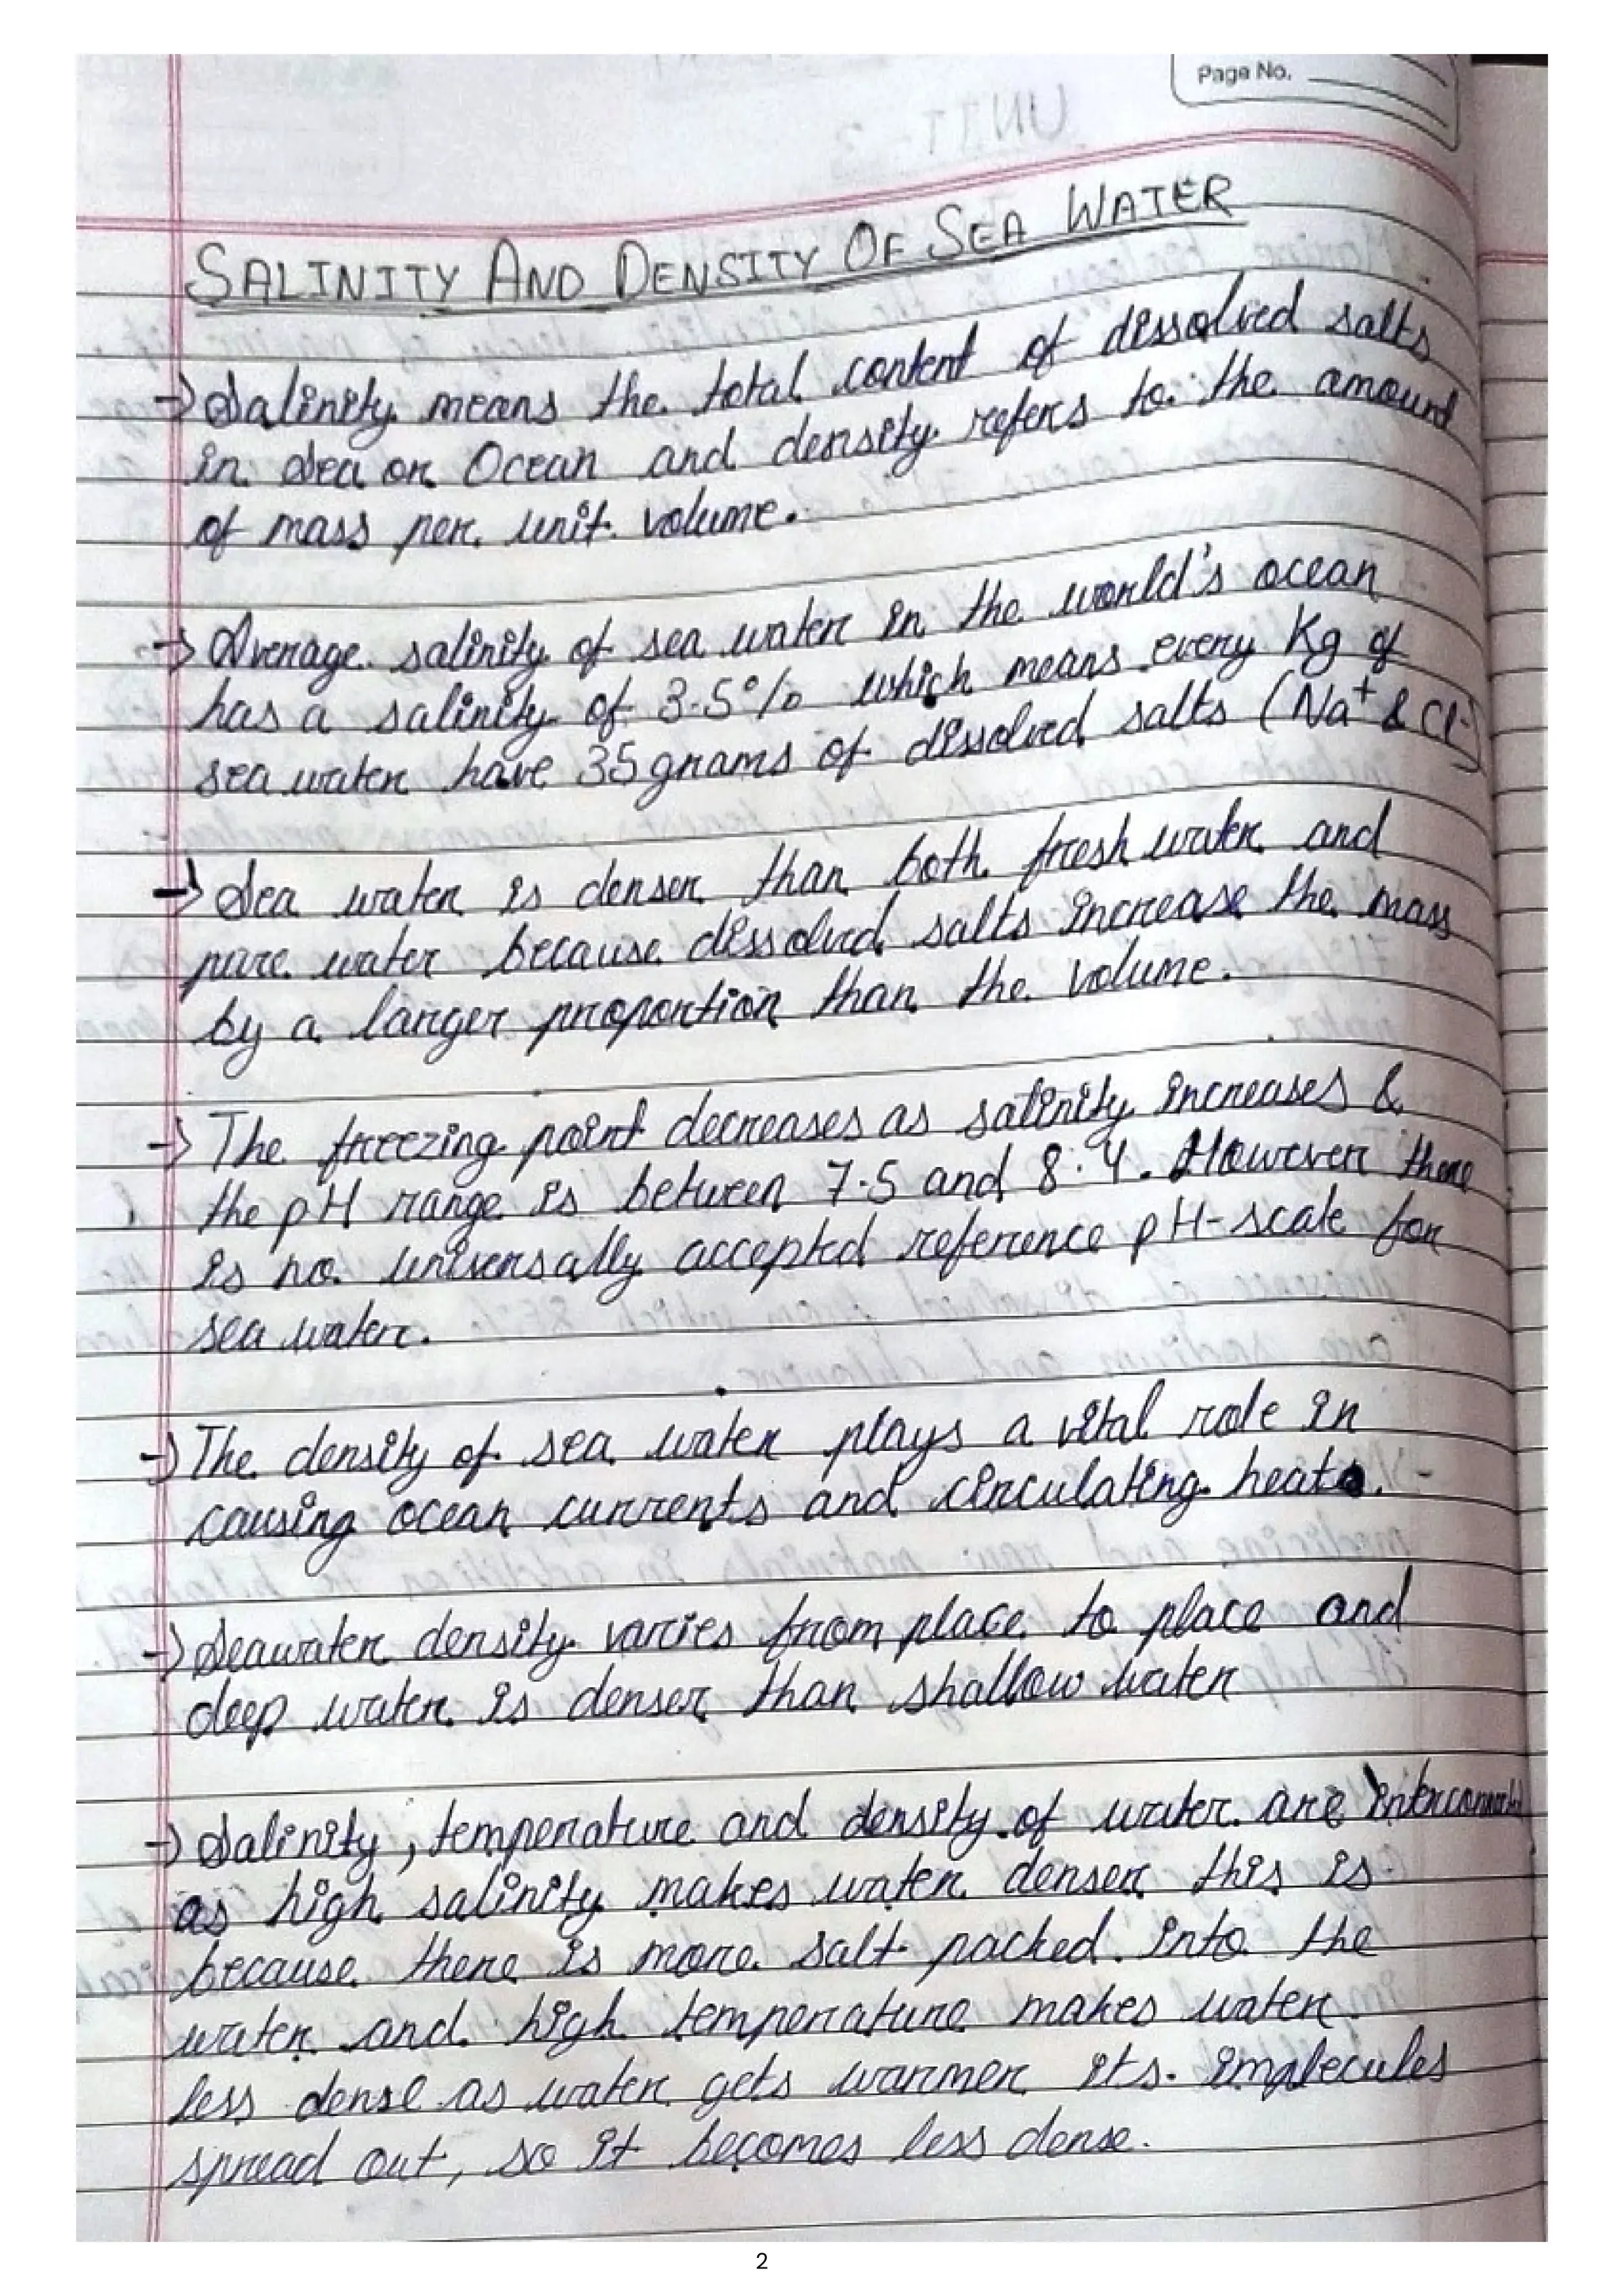 Page No.
SALINITY AND DENSITY OF SEA WATER
→ Salinity means the total content of dissolved salts
in sea or Ocean and density refers to the amount
of mass per unit volume.
→ Average salinity of sea water in the world's ocean
has a salinity of 3.5% which means every Kg of
sea water have 35 grams of dissolved salts (Na+ & Cl-)
→ Sea water is denser than both fresh water and
pure water because dissolved salts increase the mass
by a larger proportion than the volume.
→ The freezing point decreases as salinity increases &
the pH range is between 7.5 and 8.4. However there
is no universally accepted reference pH-scale for
sea water.
→ The density of sea water plays a vital role in
causing ocean currents and circulating heat.
→ Seawater density varies from place to place and
deep water is denser than shallow water
→ Salinity, temperature and density of water are interconnected
as high salinity makes water denser this is
because there is more salt packed into the
water and high temperature makes water
less dense as water gets warmer its molecules
spread out, so it becomes less dense.
2